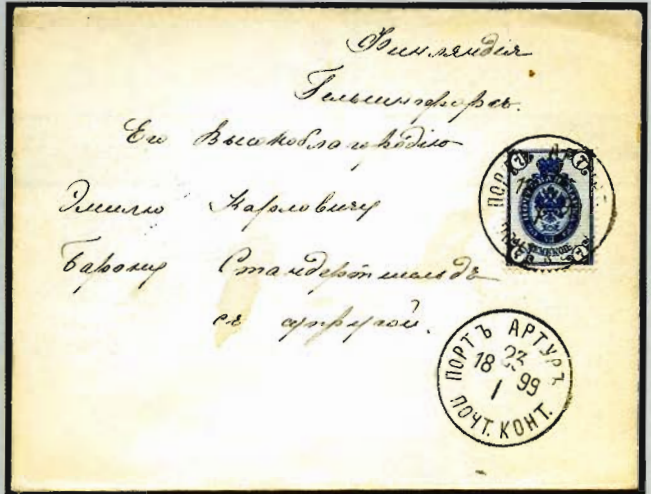 Финляндія
Гельсингфорсъ.
Его Высокоблагородію
Эмилю Карловичу
Барону Стандертшельдъ
съ супругой.
ПОРТЪ АРТУРЪ
23
18 99
I
ПОЧТ. КОНТ.
7 7
СЕМЬ КОП.
7 7